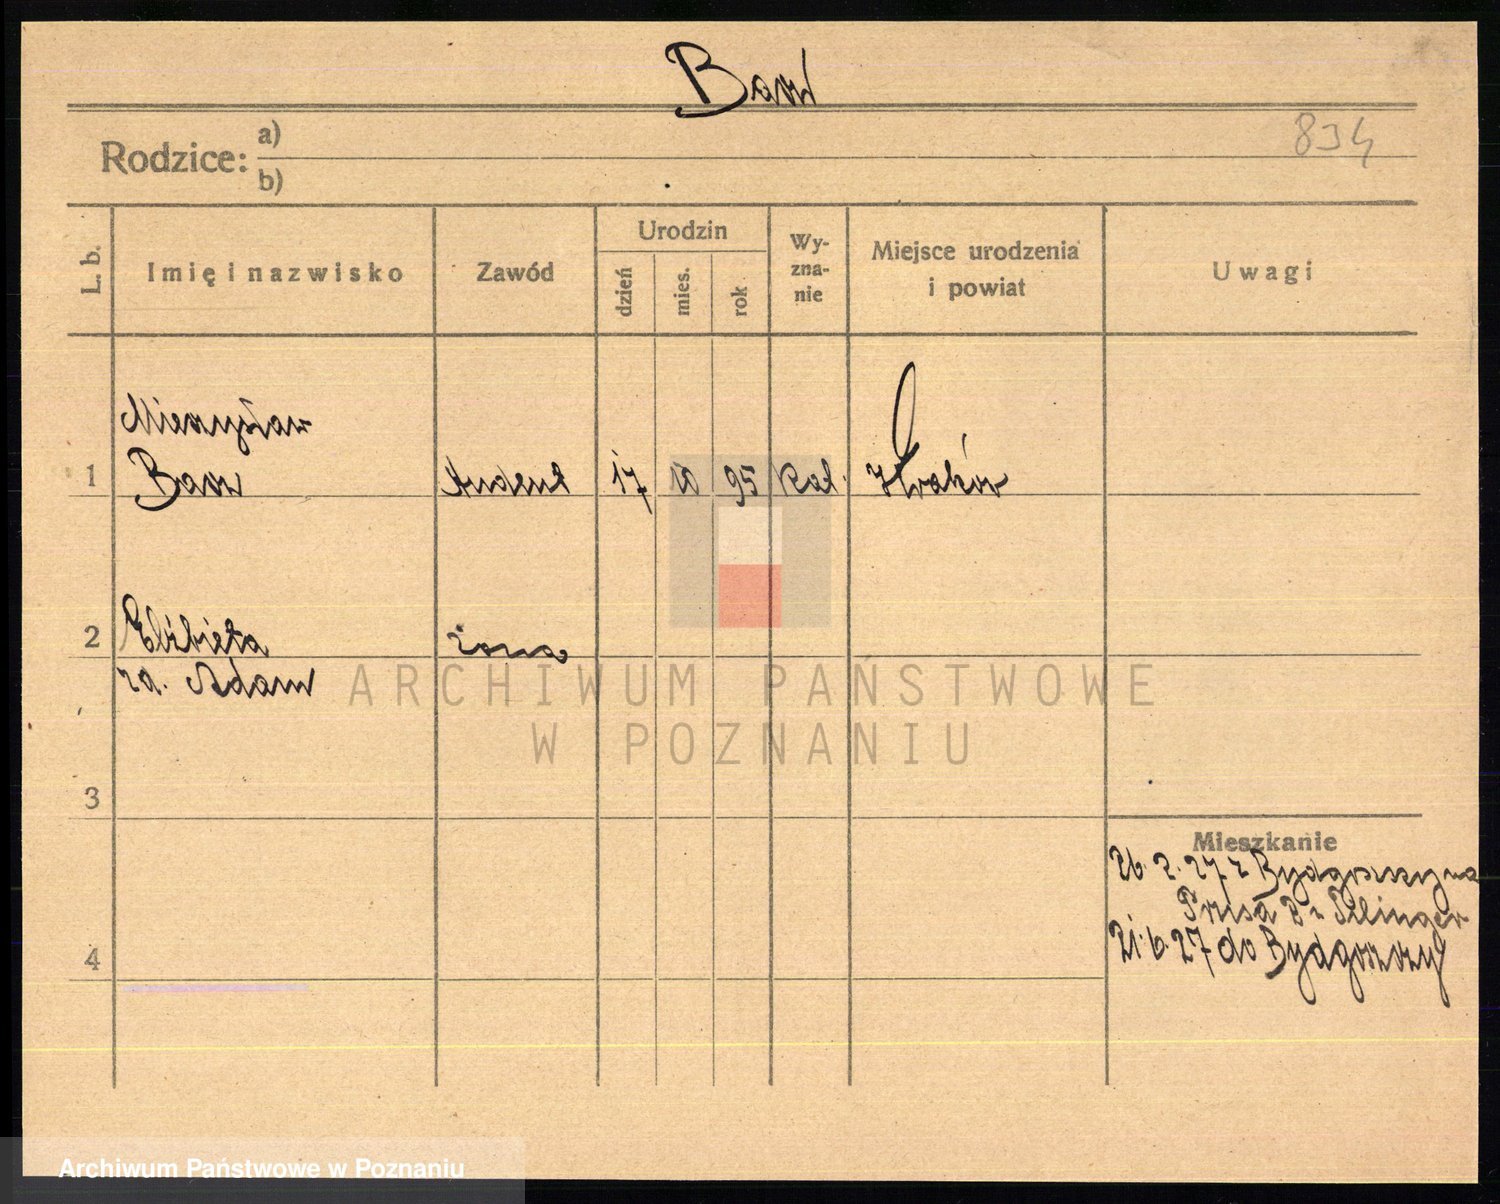 834
Rodzice: a)
b)
L. b.
Imię i nazwisko
Zawód
Urodzin
dzień
mies.
rok
Wy-
zna-
nie
Miejsce urodzenia
i powiat
Uwagi
Mieczysław
1 student 17 10 95 kat. Kraków
2 Elżbieta żona
za. Adam
3
Mieszkanie
26. 2. 27 z
4
21. 6. 27 do Bydgoszczy
ARCHIWUM PAŃSTWOWE
W POZNANIU
Archiwum Państwowe w Poznaniu